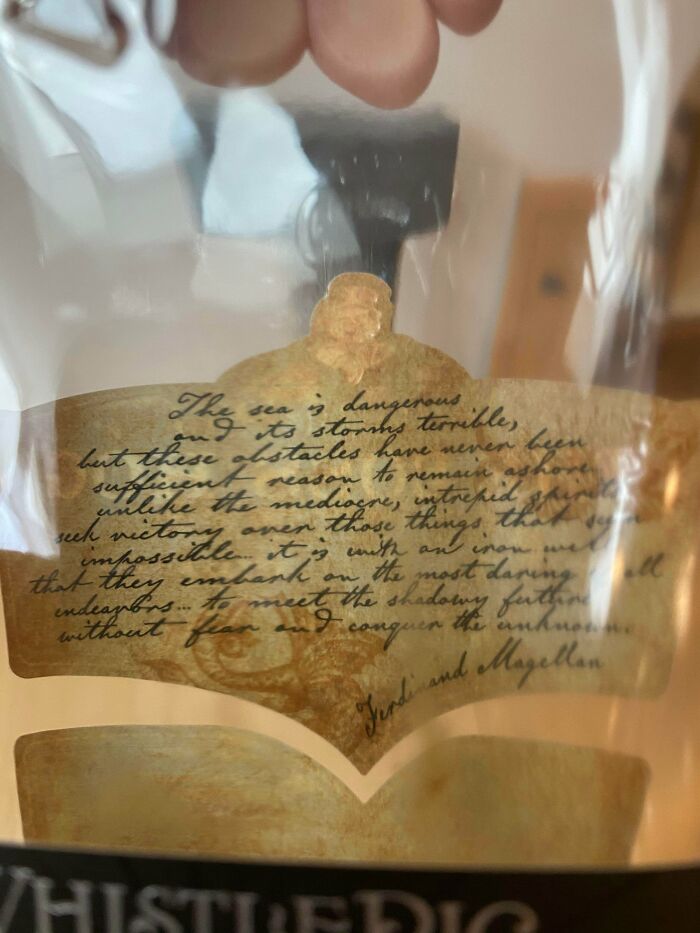 The sea is dangerous
and its storms terrible,
but these obstacles have never been
sufficient reason to remain ashore
unlike the mediocre, intrepid spirits
seek victory over those things that seem
impossible... it is with an iron will
that they embark on the most daring of all
endeavors... to meet the shadowy future
without fear and conquer the unknown.
Ferdinand Magellan
WHISTLEPIG